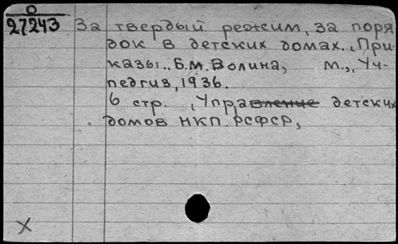 О
27243 За твердый режим, за поря
док в детских домах. „При
казы„. Б.м. Волина, м., Уч-
педгиз, 1936.
6 стр. „Управление детских
домов НКП. РСФСР,
X